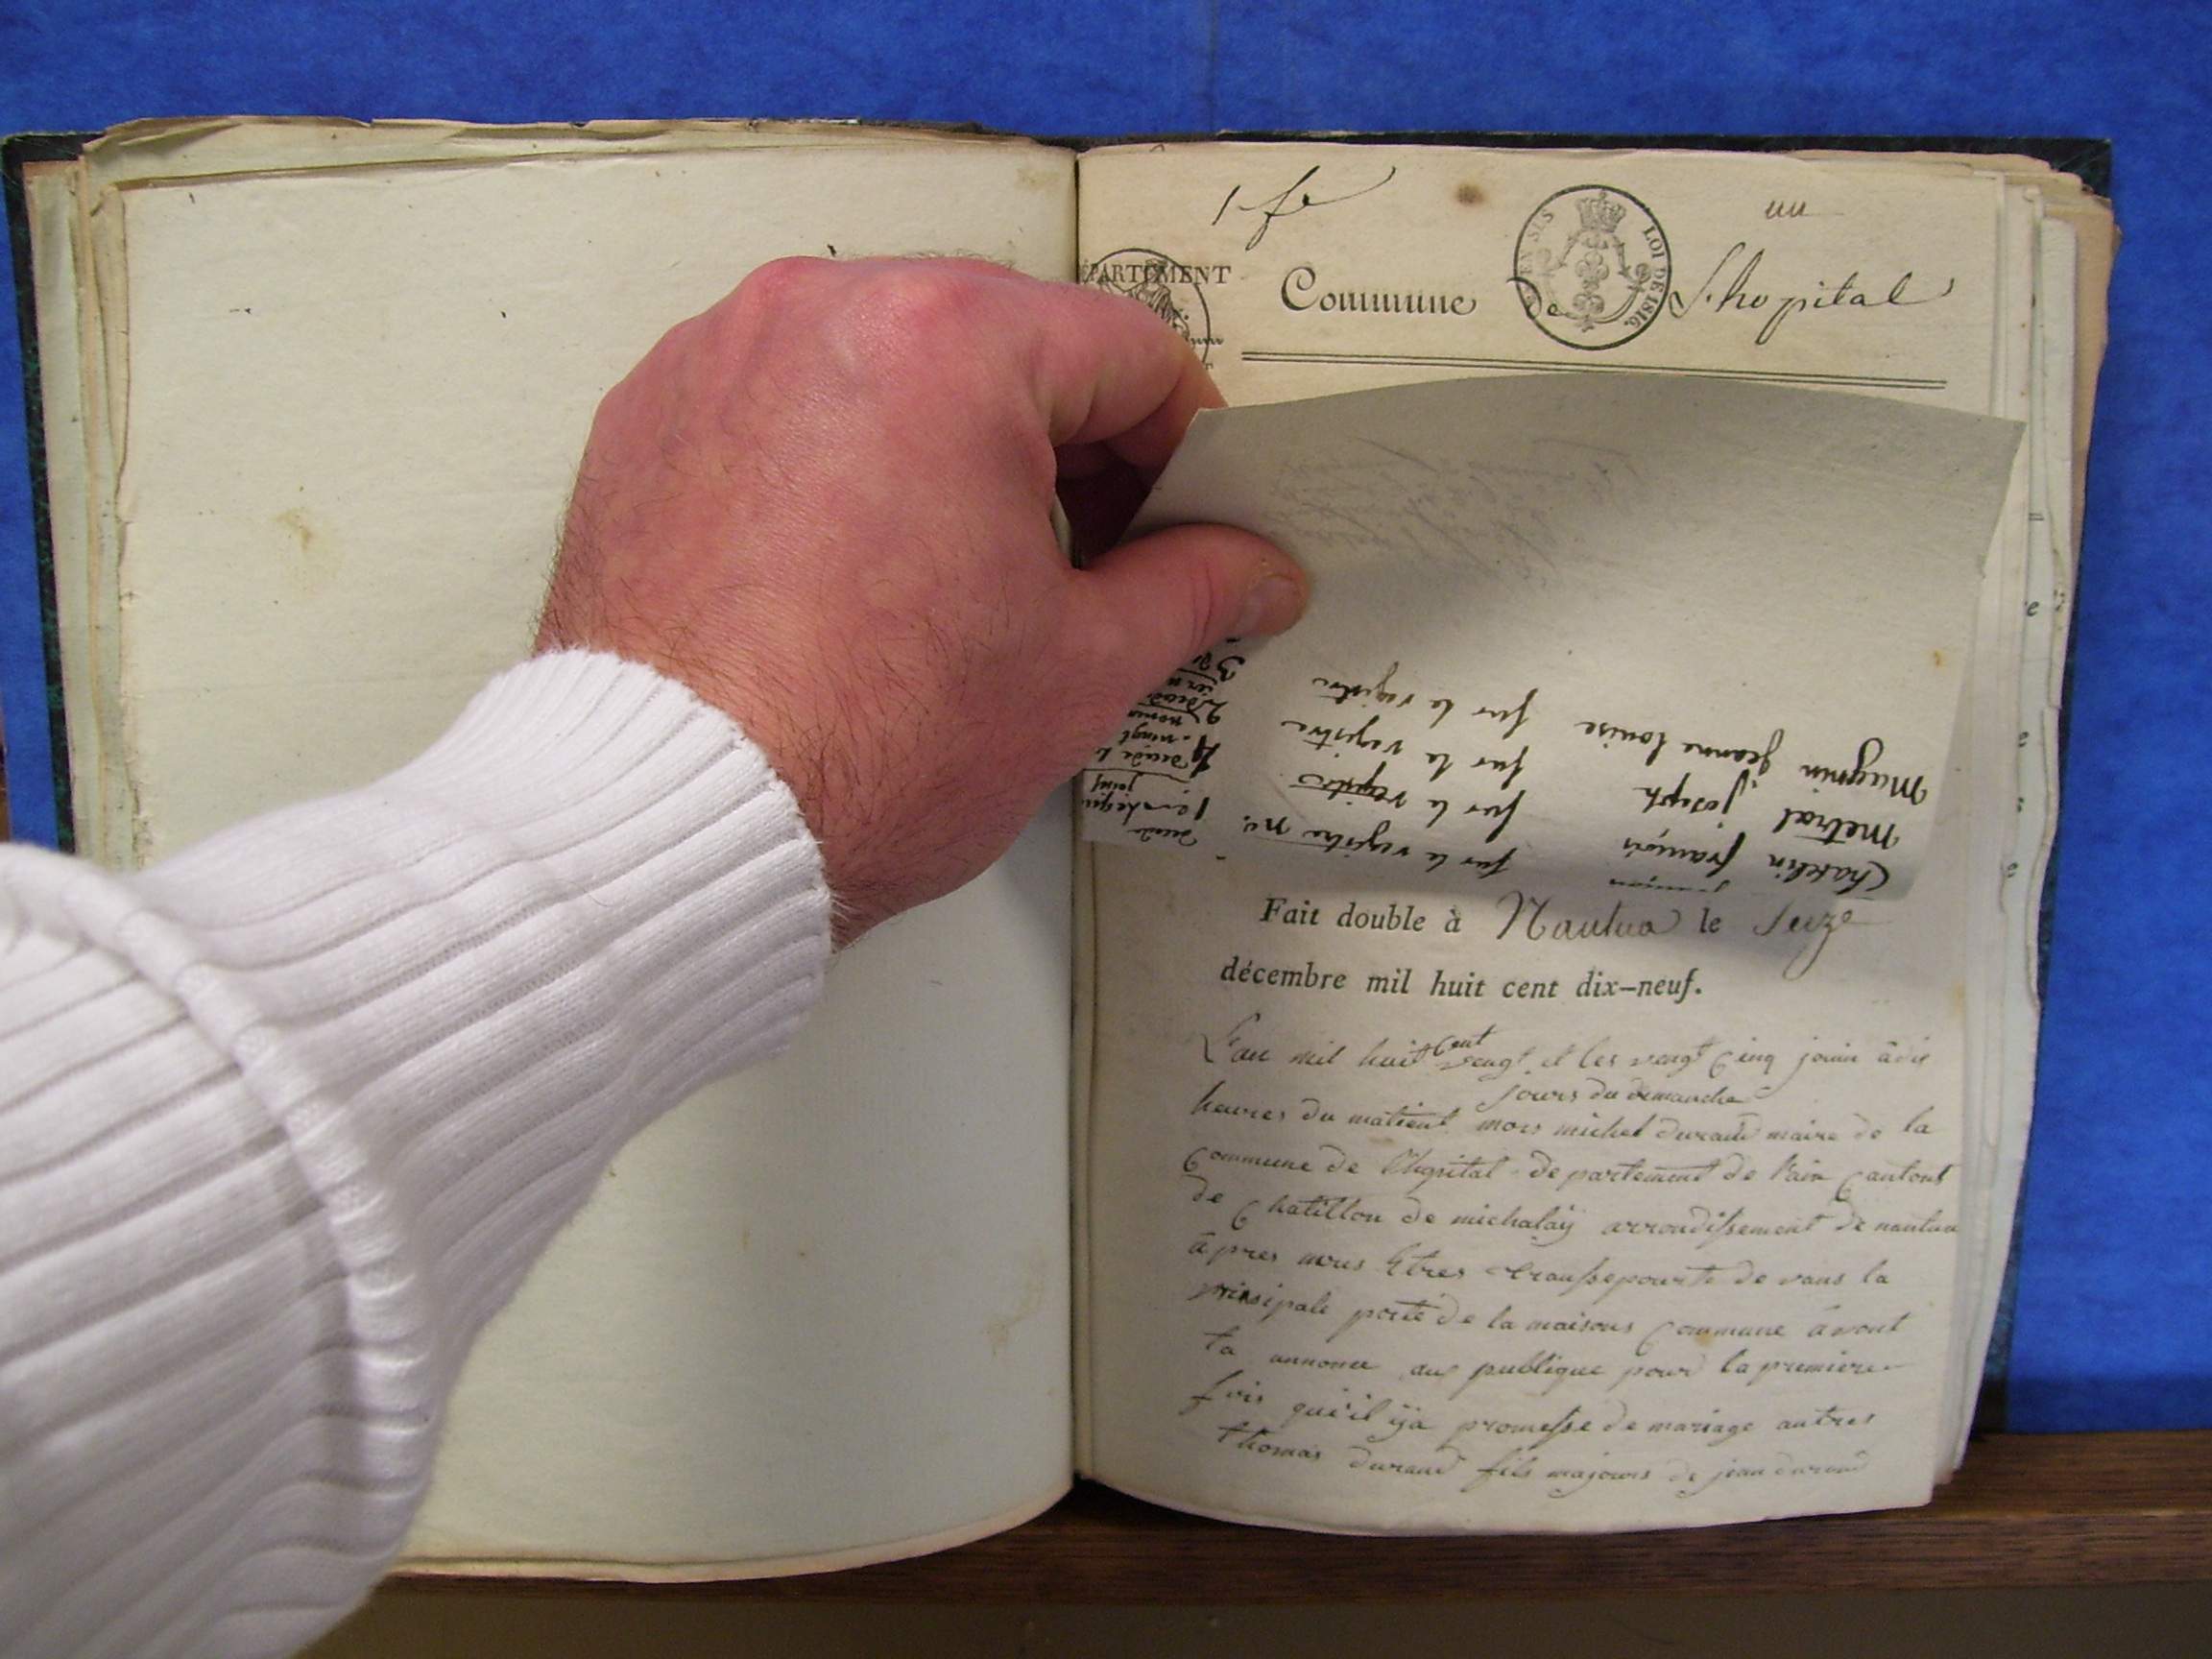 1 fe
un
EN SUS
LOI DE 1816.
DÉPARTEMENT
Commune de Lhopital
Magnin jeanne louise sur le registre
Metral joseph sur le registre
françois sur le registre
sur le registre
Fait double à Nantua le seize
décembre mil huit cent dix-neuf.
L'an mil huit cent vengt et les vengt cinq jouin à dix
jours du dimanche
heures du matient nous michel durand maire de la
Commune de Lhopital departement de l'ain Cantont
de Chatillon de michalaÿ arrondissement de nantua
àpres nous Etres transsepourté de vans la
prinsipale porte de la maisons Commune avont
ta annoncé au publique pour la premiere
fois qui'il ÿa promesse de mariage autres
thomas durand fils majours de jean durand